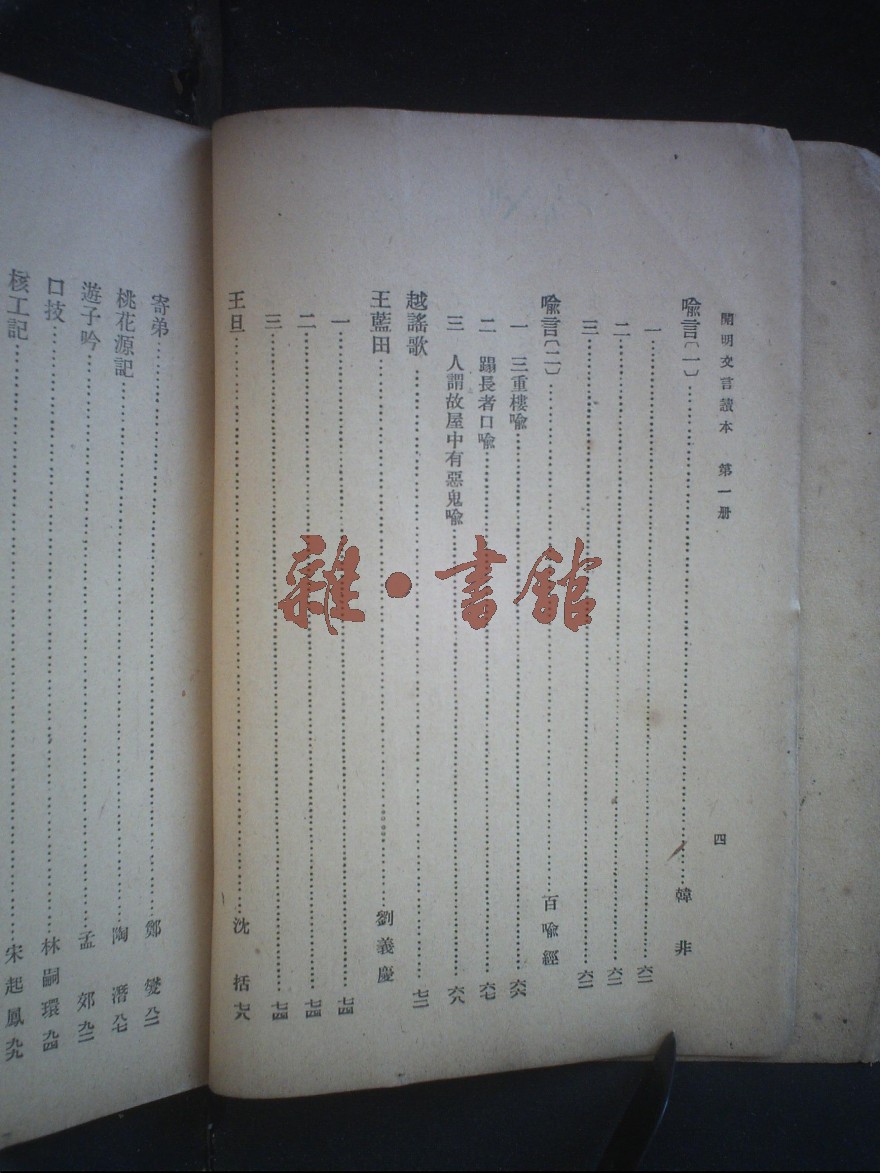 開明文言讀本　第一册　四
喩言〔一〕……韓非
一……六二
二……六二
三……六二
喩言〔二〕……百喩經
一　三重樓喩……六六
二　蹋長者口喩……六七
三　人謂故屋中有惡鬼喩……六八
越謠歌……七二
王藍田……劉義慶
一……七四
二……七四
三……七四
王旦……沈括七八
寄弟……鄭燮八二
桃花源記……陶潛八七
遊子吟……孟郊九二
口技……林嗣環九四
核工記……宋起鳳九九
雜·書館